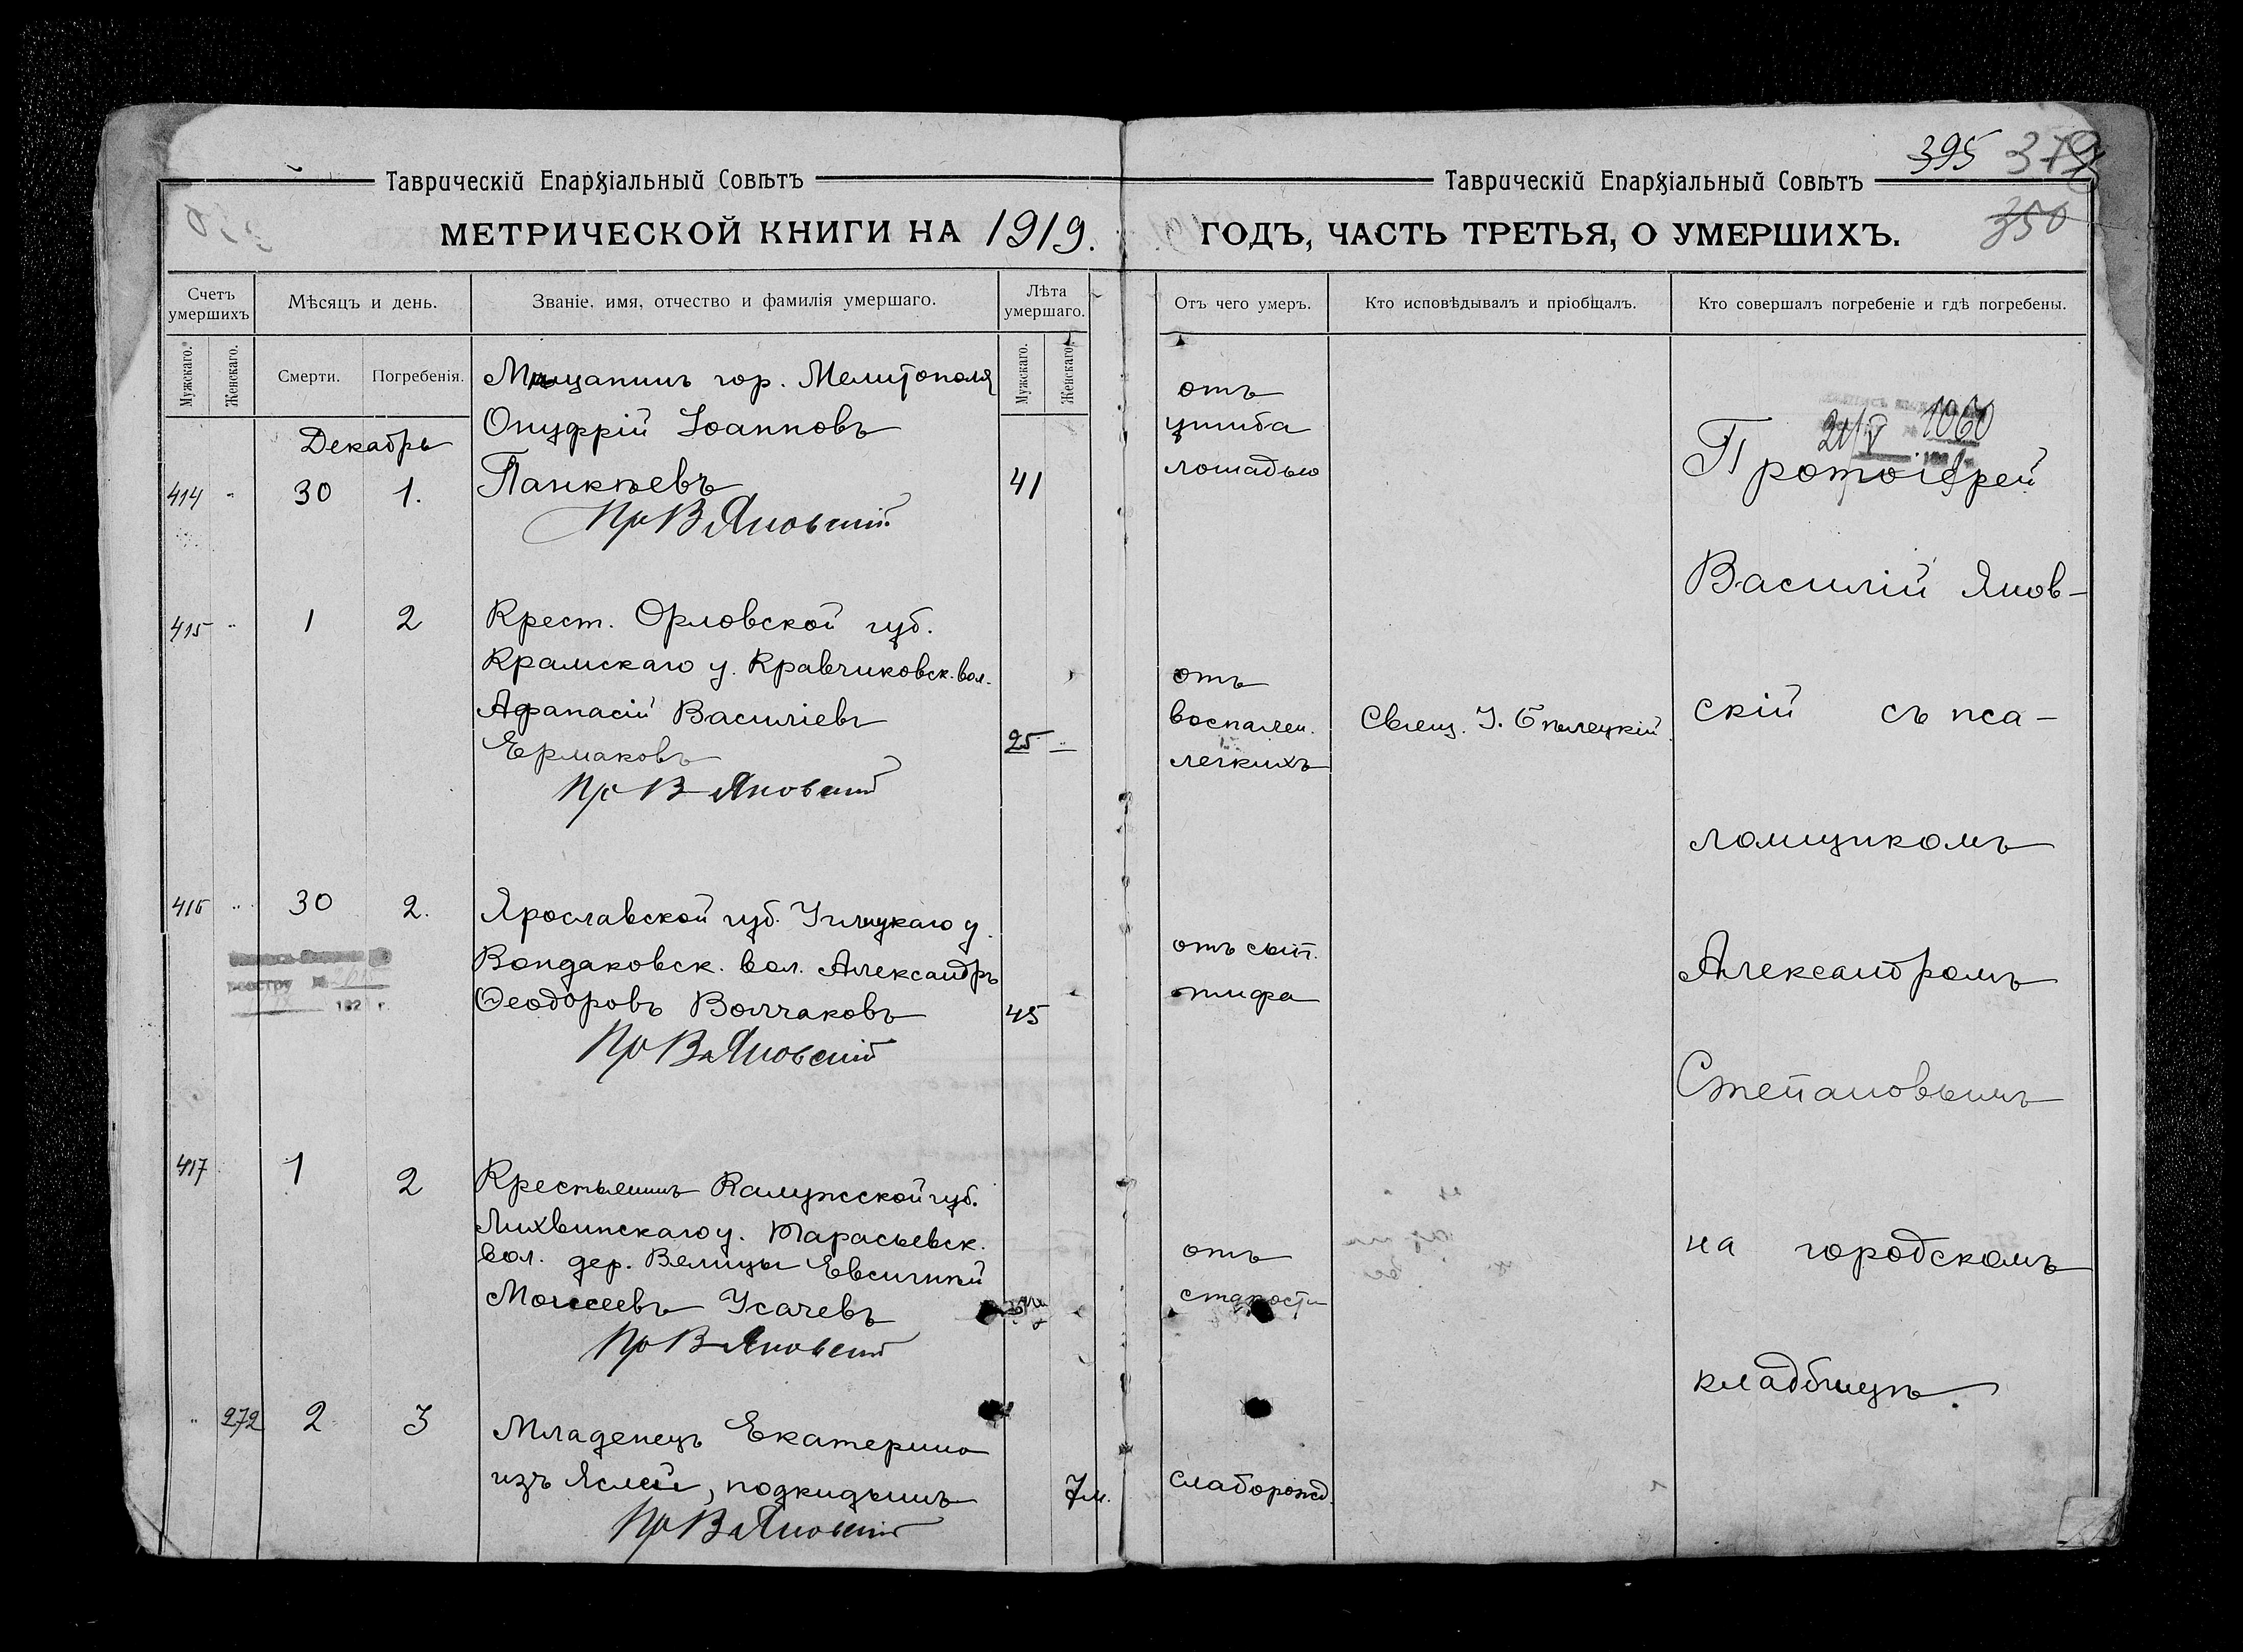 395 379
Таврическій Епархіальный Совѣтъ
Таврическій Епархіальный Совѣтъ
МЕТРИЧЕСКОЙ КНИГИ НА 1919.
ГОДЪ, ЧАСТЬ ТРЕТЬЯ, О УМЕРШИХЪ.
350
Счетъ умершихъ
Мѣсяцъ и день.
Званіе, имя, отчество и фамилія умершаго.
Лѣта умершаго.
Отъ чего умеръ.
Кто исповѣдывалъ и пріобщалъ.
Кто совершалъ погребеніе и гдѣ погребены.
Мужскаго.
Женскаго.
Смерти.
Погребенія.
Мужскаго.
Женскаго.
Декабрь
414 " 30 1.
Мѣщанинъ гор. Мелитополя
Онуфрій Іоанновъ
Панкѣевъ
Пр В Яновскій
41
отъ
ушиба
лошадью
415 " 1 2
Крест. Орловской губ.
Крамскаго у. Кравчиковск. вол.
Афанасій Василіевъ
Ермаковъ
Пр В Яновскій
25
отъ
воспален.
легкихъ
Свящ. І. Бѣлецкій.
416 " 30 2.
Ярославской губ. Углицкаго у.
Кондаковск. вол. Александръ
Ѳеодоровъ Волчаковъ
Пр В Яновскій
45
отъ сып.
тифа
реестру №
192 г.
417 1 2
Крестьянинъ Калужской губ.
Лихвинскаго у. Тарасьевск.
вол. дер. Велицы Евсигній
Моисеевъ Усачевъ
Пр В Яновскій
отъ
старости
" 272 2 3
Младенецъ Екатерина
изъ Яслей, подкидышъ
Пр В Яновскій
7 м.
слаборожд.
21/V № 1060
Протоіерей
Василій Янов-
скій съ пса-
ломщикомъ
Александромъ
Степановымъ
на городскомъ
кладбищѣ.